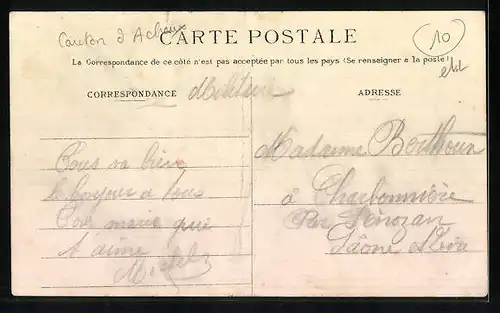 Canton d'Acheux
CARTE POSTALE
10
La Correspondance de ce côté n'est pas acceptée par tous les pays (Se renseigner à la poste)
CORRESPONDANCE
Militaire
ADRESSE
Tous va bien
le bonjour a tous
Ton mari que
t'aime
Michel
Madame Berthoun
à Charbonnière
Par Sénozan
Saône & Loire